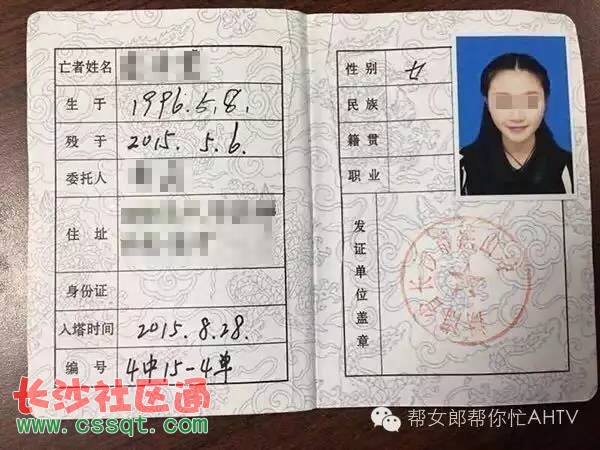 亡者姓名
生于 1996.5.8.
殁于 2015.5.6.
委托人
住址
身份证
入塔时间 2015.8.28.
编号 4中15-4单
性别 女
民族
籍贯
职业
发证单位盖章
长沙社区通
www.cssqt.com
帮女郎帮你忙AHTV